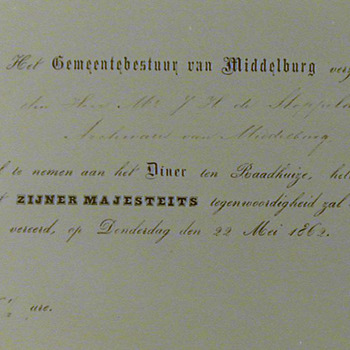 Het Gemeentebestuur van Middelburg ver
den Heer Mr. J. H. de Stoppela
Archivaris van Middelburg
te nemen aan het Diner ten Raadhuize, het
ZIJNER MAJESTEITS tegenwoordigheid zal
vereerd, op Donderdag den 22 Mei 1862.
½ ure.